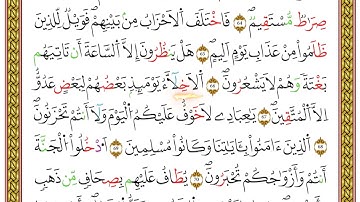 صِرَٰطٌ مُّسْتَقِيمٌ ٦٤ فَاخْتَلَفَ الْأَحْزَابُ مِنۢ بَيْنِهِمْ فَوَيْلٌ لِّلَّذِينَ
ظَلَمُوا۟ مِنْ عَذَابِ يَوْمٍ أَلِيمٍ ٦٥ هَلْ يَنظُرُونَ إِلَّا السَّاعَةَ أَن تَأْتِيَهُم
بَغْتَةً وَهُمْ لَا يَشْعُرُونَ ٦٦ الْأَخِلَّآءُ يَوْمَئِذٍۭ بَعْضُهُمْ لِبَعْضٍ عَدُوٌّ
إِلَّا الْمُتَّقِينَ ٦٧ يَٰعِبَادِ لَا خَوْفٌ عَلَيْكُمُ الْيَوْمَ وَلَآ أَنتُمْ تَحْزَنُونَ
٦٨ الَّذِينَ ءَامَنُوا۟ بِـَٔايَٰتِنَا وَكَانُوا۟ مُسْلِمِينَ ٦٩ ادْخُلُوا۟ الْجَنَّةَ
أَنتُمْ وَأَزْوَٰجُكُمْ تُحْبَرُونَ ٧٠ يُطَافُ عَلَيْهِم بِصِحَافٍ مِّن ذَهَبٍ